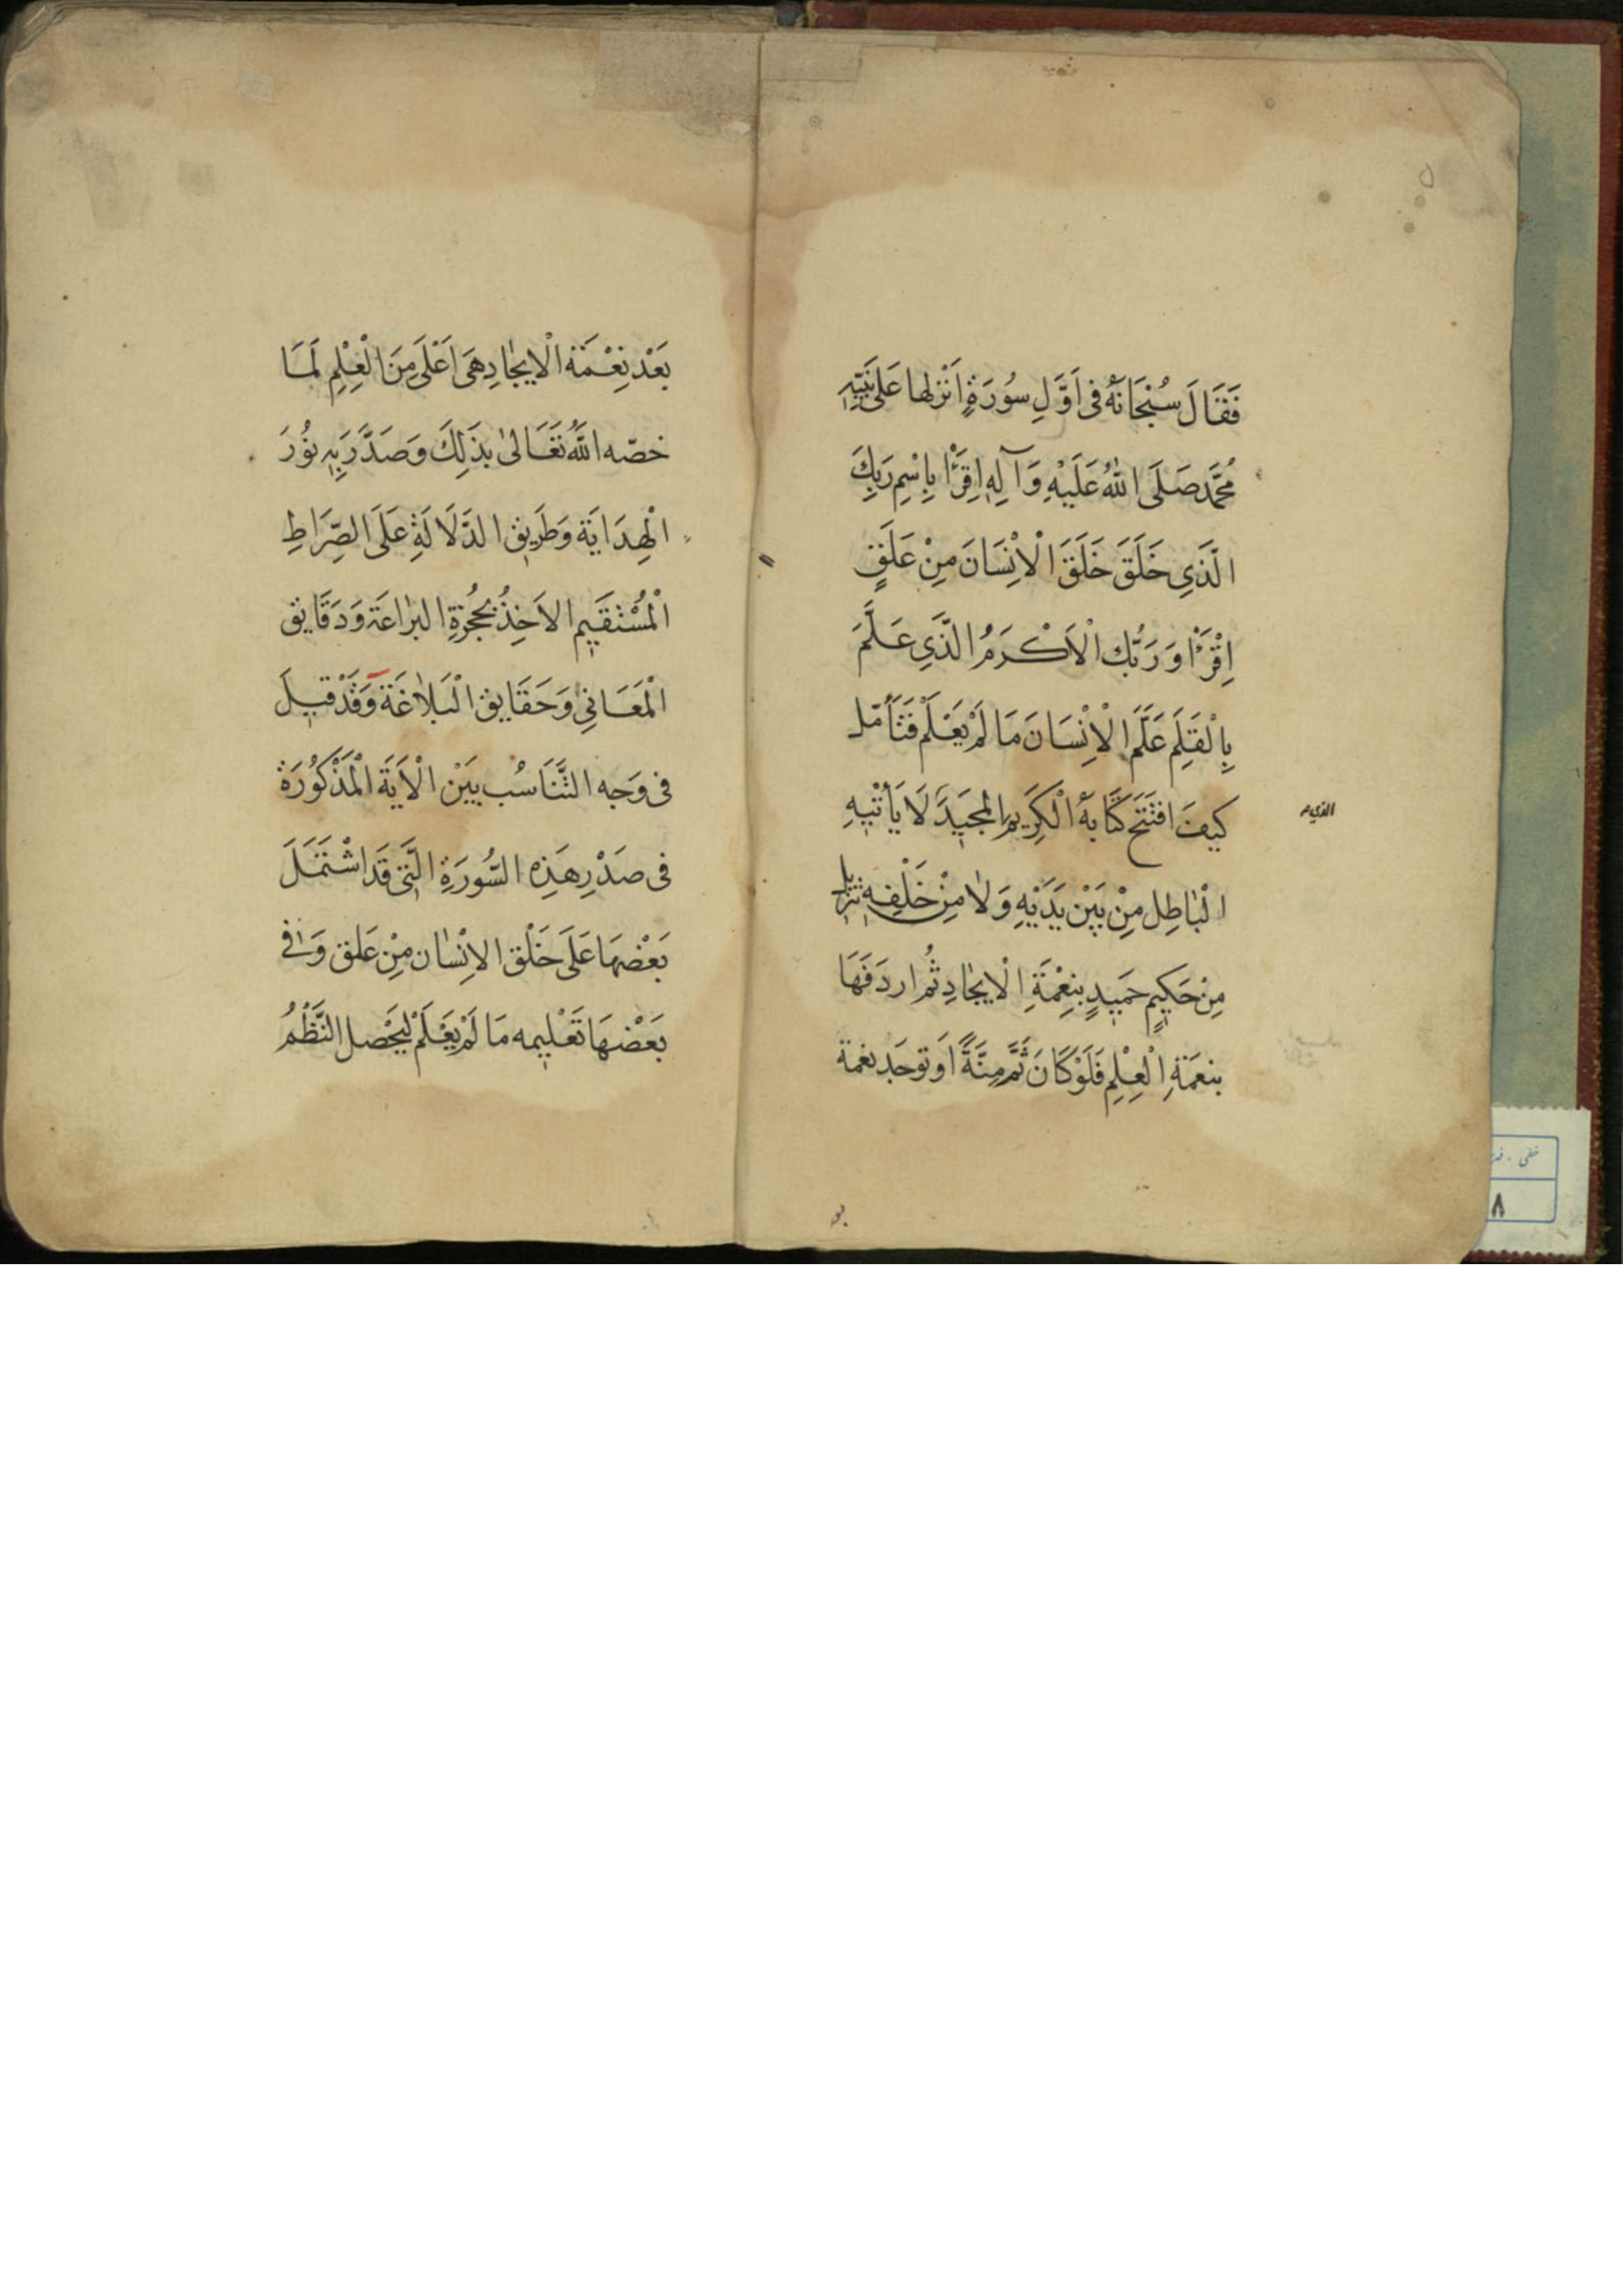 فَقَالَ سُبْحَانَهُ فی اَوَّلِ سُورَةٍ اَنْزَلها عَلی نَبِیِّهِ
مُحَمَّد صَلَی اللهُ عَلَیْهِ وَآلِهِ اِقْرَأْ بِاِسْمِ رَبِكَ
الَّذَي خَلَقَ خَلَقَ الْاِنْسَانَ مِنْ عَلَقٍ
اِقْرَأْ وَرَبُّك الْاَكْرَمُ الَّذَي عَلَّمَ
بِالْقَلَمِ عَلَّمَ الْاِنْسَانَ مَا لَمْ يَعْلَمْ فَتَأَمّل
كيفَ افتَتَح كِتَابَهُ الْكَرِيم المَجيَدَ لَا يَأْتيهِ
الذي
الْبٰاطِل مِنْ بَيْن يَدَيْهِ وَلٰا مِنْ خَلْفِهِ تنزيل
مِنْ حَكِيمٍ حَمِيدٍ بِنِعْمَةِ الْايجٰادِ ثُم اردَفَهَا
بنعمَةِ الْعِلْمِ فَلَوْ كَانَ ثَمَّ مِنَّةً اَو توجَد نعمة
بو
بَعْد نِعْمَة الْايجٰادِ هیَ اَعْلَی مِنَ الْعِلْمِ لَمَا
خصّه اللّهُ تَعَالیٰ بِذَلِكَ وَصَدَّرَ بِهِ نُورَ
الْهِدَايَة وَطَرِيق الدَّلَالَةِ عَلَی الصِّرَاطِ
الْمُسْتَقَيِم الاَخِذُ بِحُجُزَةِ البرٰاعَة وَدَقَايق
الْمَعَانِي وَحَقَايق الْبَلٰاغَة وَقَدْ قيلَ
فی وَجه التَّنَاسُب بَيَنْ الْاَيَة الْمَذْكُورَة
فی صَدْرِ هَذِه السُّورَةِ الَّتی قَد اشْتَمَلَ
بَعْضهَا عَلَی خَلْق الاِنْسٰان مِنْ عَلق وَفی
بَعْضهَا تَعْلِيمه مَا لَمْ يَعْلَمْ لِيَحْصل النَّظْمُ
٨